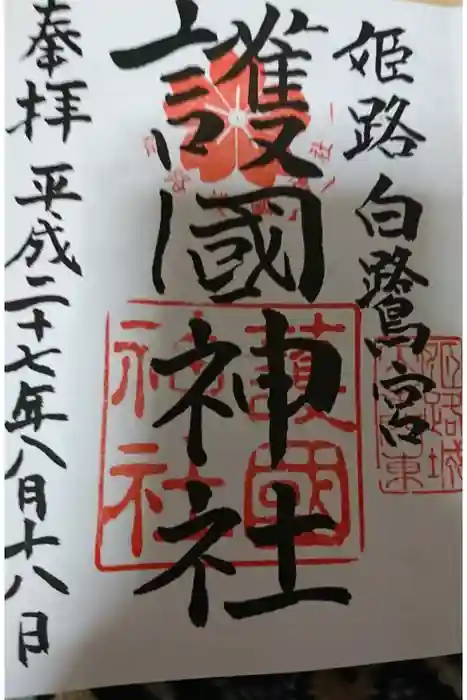 姫路白鷺宮
護國神社
奉拝 平成二十七年八月十八日
護國
神社